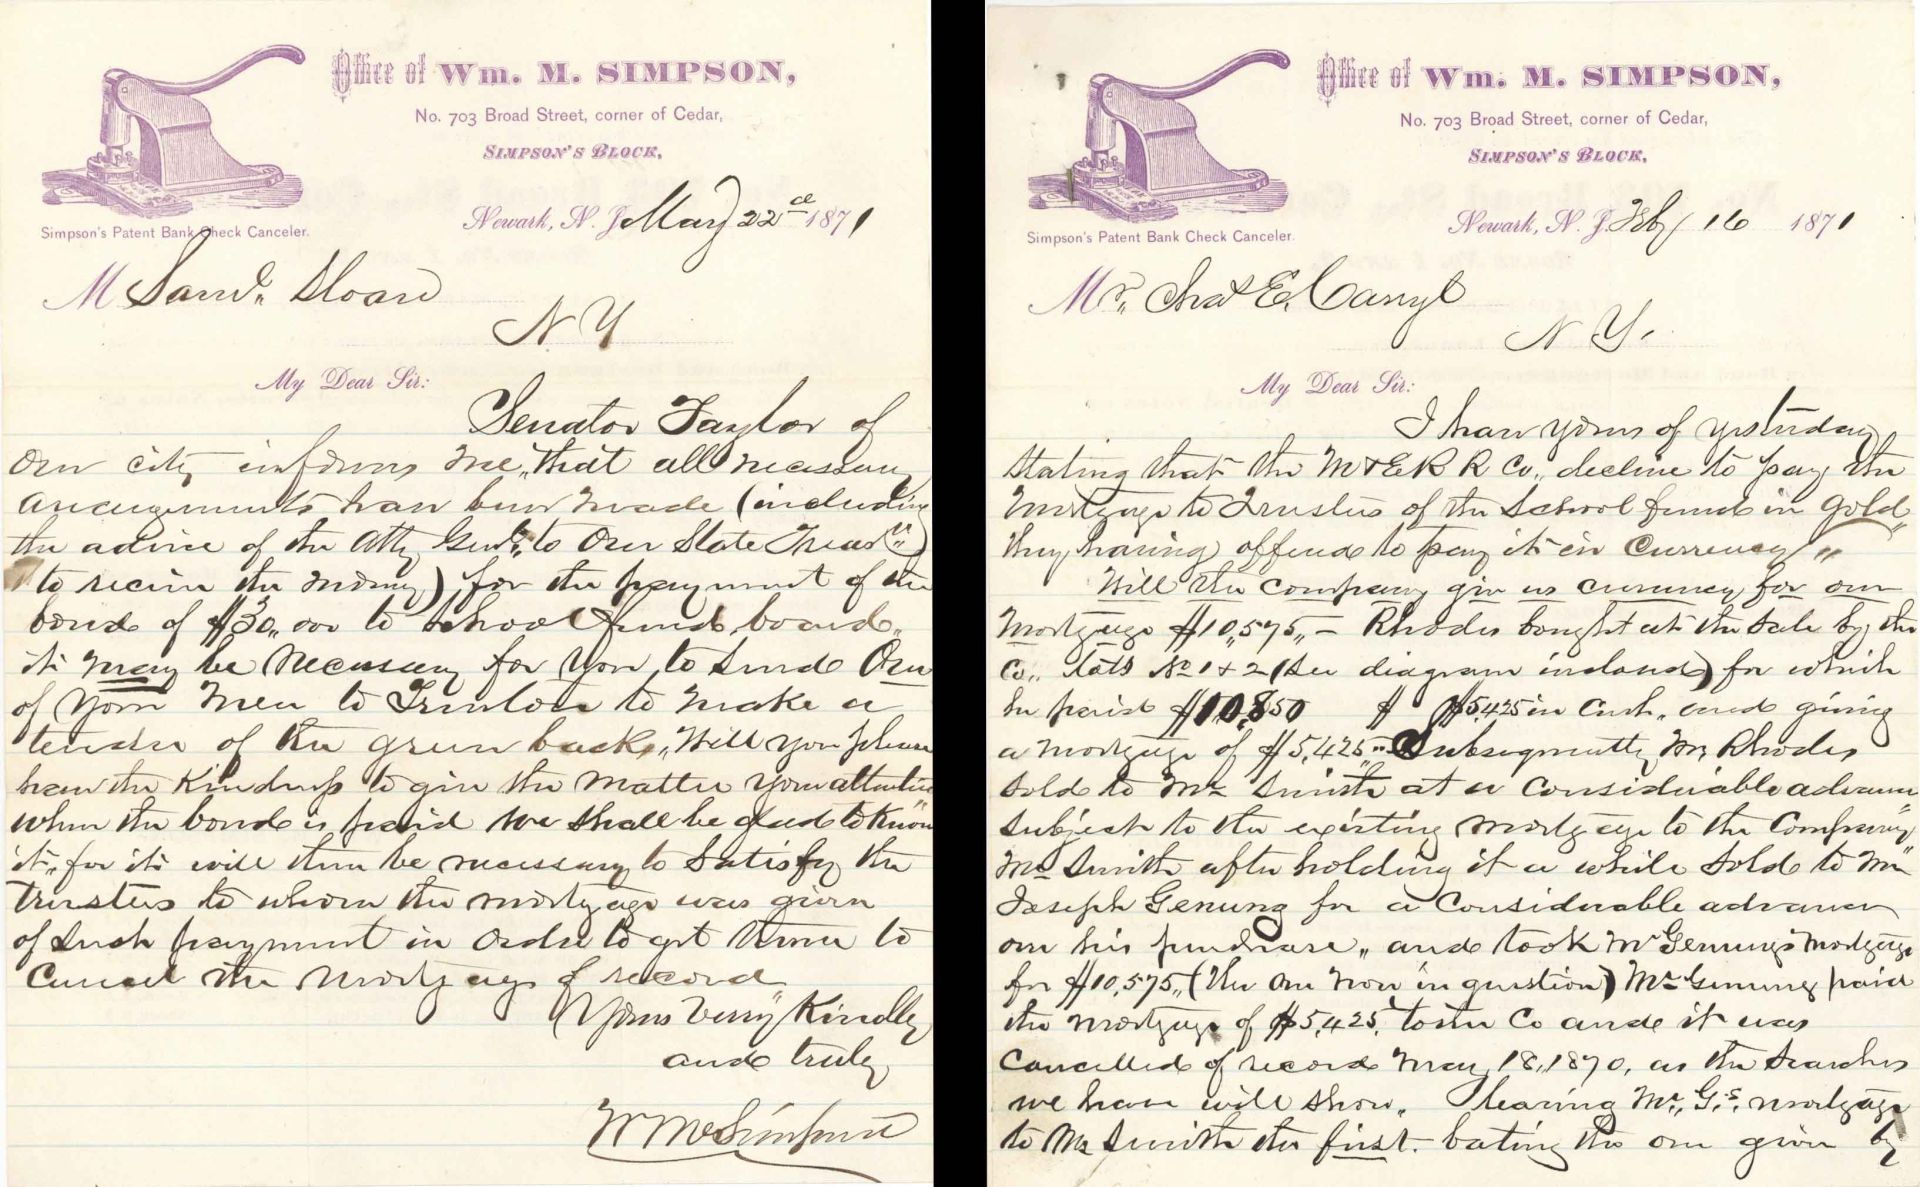 Office of Wm. M. SIMPSON,
No. 703 Broad Street, corner of Cedar,
SIMPSON'S BLOCK,
Newark, N. J. May 22d 1871
Simpson's Patent Bank Check Canceler.
M Saml. Sloan
N Y
My Dear Sir:
Senator Taylor of
our city informs me, that all necessary
arrangements have been made (including
the advice of the Atty Genl. to our State Treasr.
to receive the money) for the payment of the
bond of $30,000 to School fund board.
it may be necessary for you to send one
of your men to Trenton to make a
tender of the green backs, Will you please
have the kindness to give the matter your attention
when the bond is paid we shall be glad to know
it, for it will then be necessary to satisfy the
trustees to whom the mortgage was given
of such payment in order to get them to
cancel the mortgage of record
Yours very kindly
and truly
Wm M Simpson
Office of Wm. M. SIMPSON,
No. 703 Broad Street, corner of Cedar,
SIMPSON'S BLOCK,
Newark, N. J. Feby 16 1871
Simpson's Patent Bank Check Canceler.
Mr. Chas E. Carryl
N Y.
My Dear Sir:
I have yours of yesterday
stating that the M & E R R Co., decline to pay the
mortgage to Trustees of the School fund in gold
they having offered to pay it in currency
Will the company give us currency for our
mortgage $10,575, - Rhodes bought at the sale by the
Co., lots No 1 & 2 (see diagram inclosed) for which
he paid $10,850 $ $5,425 in cash, and giving
a mortgage of $5,425,. Subsequently Mr Rhodes
sold to Mr Smith at a considerable advance
subject to the existing mortgage to the Company
Mr Smith after holding it a while sold to Mr
Joseph Genung for a considerable advance
on his purchase, and took Mr Genung's mortgage
for $10,575, (the one now in question) Mr Genung paid
the mortgage of $5,425, to the Co and it was
cancelled of record May 18, 1870, as the searches
we have will show. leaving Mr. G's. mortgage
to Mr Smith the first. bating the one given by